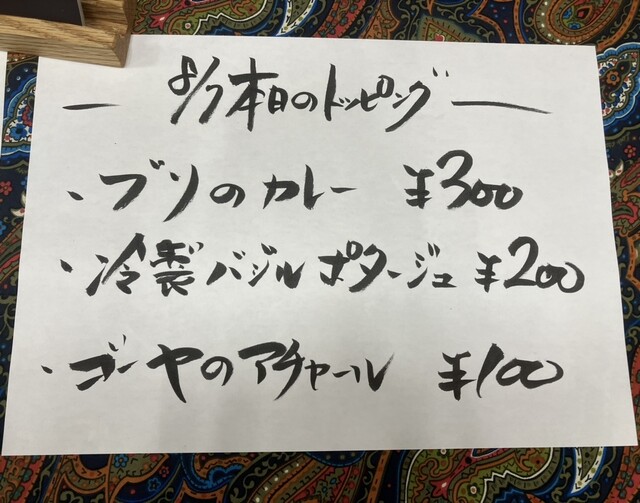 8/7 本日のトッピング
・ブリのカレー ¥300
・冷製バジルポタージュ ¥200
・ゴーヤのアチャール ¥100